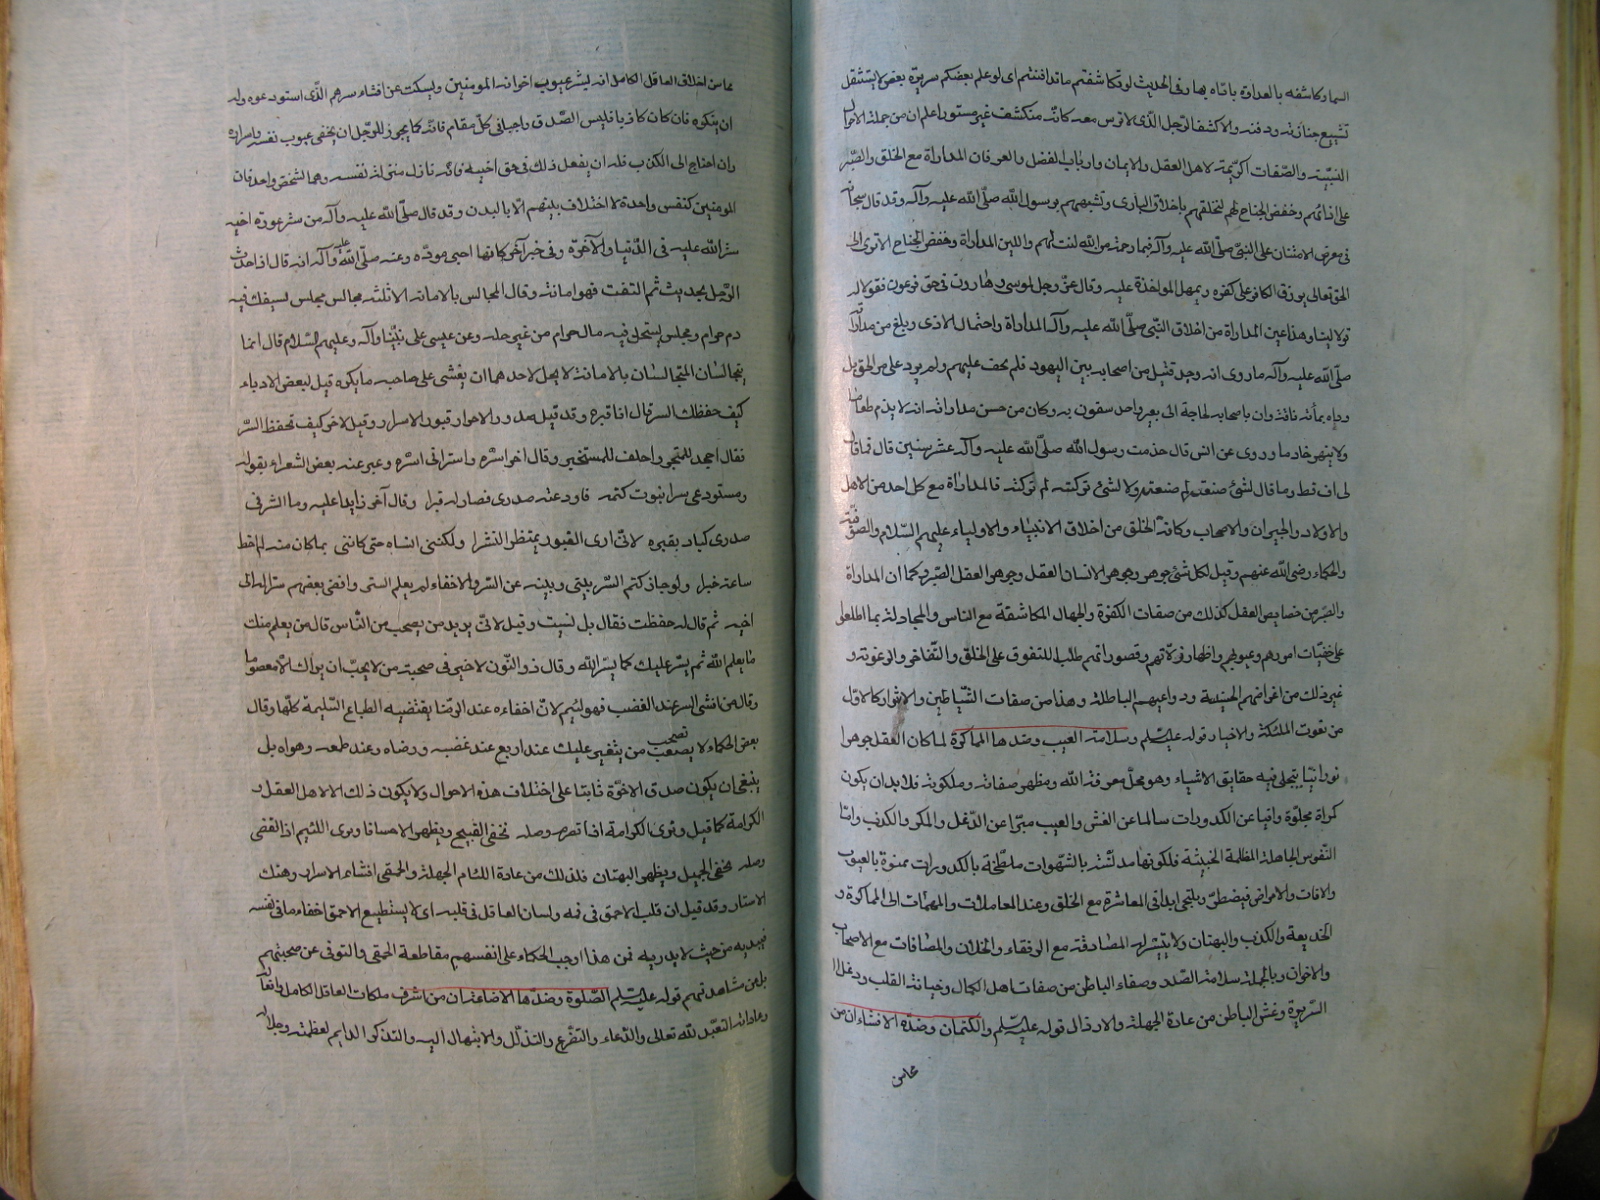 السر وكاشفه بالعداوة باداه بها وفى الحديث لو تكاشفتم ما تدافنتم اى لو علم بعضكم سريرة بعض لاستثقل
تشييع جنازته ودفنه والاكشف الرجل الذى لا ترس معه كانه منكشف غير مستور اعلم ان من جملة الاحوال
السنيّة والصّفات الكريمة لاهل العقل والايمان وارباب الفضل والعرفان المداراة مع الخلق والصّبر
على اذاهم وخفض الجناح لهم لتخلقهم باخلاق البارى وتشبههم برسول الله صلّى الله عليه وآله وقد قال سبحانه
فى معرض الامتنان على النبىّ صلّى الله عليه وآله فبما رحمة من الله لنت لهم واللين المداراة وخفض الجناح الا ترى الى
الحق تعالى يرزق الكافر على كفره ويمهل المؤاخذة عليه وقال عزّ وجل لموسى وهارون فى حق فرعون فقولا له
قولا لينا وهذا عين المداراة من اخلاق النّبى صلّى الله عليه وآله المداراة واحتمال الاذى وبلغ من مداراته
صلّى الله عليه وآله ما روى انه وجد قتيل من اصحابه بين اليهود فلم يحف عليهم ولم يزد على مر الحق بل
وداه بمائة ناقة وان باصحابه لحاجة الى بعير واحد يتقوون به وكان من حسن مداراته انه لا يذم طعاما
ولا ينهر خادما وروى عن انس قال خدمت رسول الله صلّى الله عليه وآله عشر سنين قال فما قال
لى اف قط وما قال لشئ صنعته لم صنعته ولا لشئ تركته لم تركته فالمداراة مع كل احد من الاهل
والاولاد والجيران والاصحاب وكافة الخلق من اخلاق الانبياء والاولياء عليهم السّلام والصوفية
والحكماء رضى الله عنهم وقيل لكل شئ جوهر وجوهر الانسان العقل وجوهر العقل الصّبر وكما ان المداراة
والصّبر من خصايص العقل كذلك من صفات الكفرة والجهال المكاشفة مع الناس والمجادلة بما اطلعوا
على خفيّات امورهم وعيوبهم واظهار زلّاتهم وقصوراتهم طلبا للتفوق على الخلق والتّفاخر والرعونة و
غير ذلك من اغراضهم الخسيسة ودواعيهم الباطلة وهذا من صفات الشّياطين والاشرار كما الاوّل
من نعوت الملئكة والاخيار قوله عليه السّلم وسلامة الغيب وضدها المماكرة لما كان العقل جوهرا
نورانيّا يتجلى فيه حقايق الاشياء وهو محلّ معرفة الله ومظهر صفاته وملكوته فلا بد ان يكون
كمراة مجلوّة صافيا عن الكدورات سالما عن الغش والعيب مبرّا عن الدّغل والمكر والكذب وامّا
النّفوس الجاهلة المظلمة الخبيثة فلكونها مدنّسة بالشّهوات ملطّخة بالكدورات ممنوّة بالعيوب
والافات والامراض فيضطرّ ويلتجى ابدا فى المعاشرة مع الخلق وعند المعاملات والمهمّات الى المماكرة و
الخديعة والكذب والبهتان ولا يتيسّر له المصادقة مع الرفقاء والخلان والمصافات مع الاصحاب
والاخوان وبالجملة سلامة الصّدر وصفاء الباطن من صفات اهل الكمال وخيانة القلب ودغل
السّريرة وغش الباطن من عادة الجهلة والارذال قوله عليه السّلم والكتمان وضدّه الافشاء ان من
محاسن
محاسن اخلاق العاقل الكامل انه ليستر عيوب اخوانه المومنين ويسكت عن افشاء سرهم الذّى استودعوه وله
ان ينكره فان كان كاذبا فليس الصّدق واجبا فى كلّ مقام فانّه كما يجوز للرّجل ان يخفى عيوب نفسه واسراره
وان احتاج الى الكذب فله ان يفعل ذلك فى حق اخيه فانّه نازل منزلة نفسه وهما لشخص واحد فان
المومنين كنفس واحدة لا اختلاف بينهم الا بالبدن وقد قال صلّى الله عليه وآله من ستر عورة اخيه
ستر الله عليه فى الدّنيا والآخرة وفى خبر آخر كانما احيى موؤدة وعنه صلّى الله عليه وآله انه قال اذا حدث
الرّجل بحديث ثم التفت فهو امانة وقال المجالس بالامانة الا ثلثة مجالس مجلس يسفك فيه
دم حرام ومجلس يستحل فيه مال حرام من غير حله وعن عيسى على نبيّنا وآله وعليهم السّلام قال انما
يتجالسان المتجالسان بالامانة لا يحل لاحدهما ان يفشى على صاحبه ما يكره قيل لبعض الادباء
كيف حفظك السر قال انا قبره وقد قيل صدور الاحرار قبور الاسرار وقيل لاخر كيف تحفظ السّر
فقال اجحد للمخبر واحلف للمستخبر وقال اخر استره واستر انى استره وعبر عنه بعض الشعراء بقوله
ومستودعى سرا تبوت كتمه فاودعته صدرى فصار له قبرا وقال آخر زايدا عليه وما السّر فى
صدرى كباد بقبره لانّى ارى القبور ينتظر النشرا ولكننى انساه حتى كاننى بما كان منه لم احط
ساعة خبرا ولو جاز كتم السّر بينى وبينه عن السّر والاخفاء لم يعلم السّرى وافضى بعضهم سرّا له الى
اخيه ثم قال له حفظت فقال بل نسيت وقيل لابى يزيد من يصحب من النّاس قال من يعلم منك
ما يعلم الله ثم يستر عليك كما يستر الله وقال ذو النّون لا خير فى صحبة من لا يحبّ ان يراك الا معصوما
وقال من افشى السر عند الغضب فهو لئيم لانّ اخفاءه عند الرضا يقتضيه الطباع السّليمة كلّها وقال
بعض الحكماء لا تصحب من يتغير عليك عند اربع عند غضبه ورضاه وعند طمعه وهواه بل
ينبغى ان يكون صدق الاخوّة ثابتا على اختلاف هذه الاحوال ولا يكون ذلك الا لاهل العقل و
الكرامة كما قيل وترى الكرامة اذا تصرم وصله تخفى القبيح ويظهر الاحسانا وترى اللئيم اذا انقضى
وصله تخفى الجميل ويظهر البهتان فلذلك من عادة اللئام الجهلة والحمقى افشاء الاسرار وهتك
الاستار وقد قيل ان قلب الاحمق فى فيه ولسان العاقل فى قلبه اى لا يستطيع الاحمق اخفاء ما فى نفسه
فيبديه من حيث لا يدريه فمن هذا اوجب الحكماء على انفسهم مقاطعة الحمقى والتوقى عن صحبتهم
بل عن مشاهدتهم قوله عليه السّلم الصّلوة وضدّها الاضاعة ان من اشرف ملكات العاقل الكامل وافعاله
وعاداته التعبّد لله تعالى والدّعاء والتضّرع والتذلّل والابتهال اليه والتذكر الدايم لعظمته وجلاله